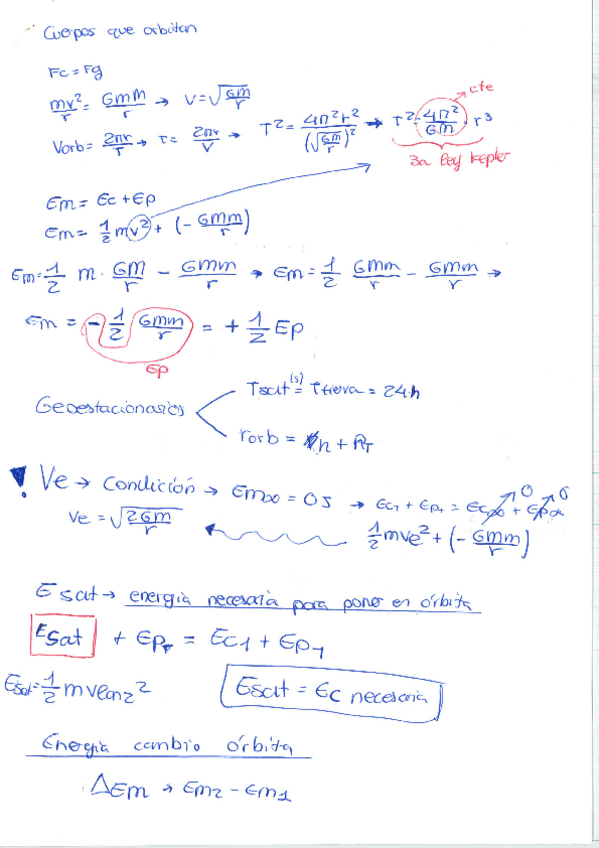 Cuerpos que orbitan
Fc = Fg
mv²/r = GMm/r → v = √(GM/r)
Vorb = 2πr/T → T = 2πr/V → T² = 4π²r²/(√(GM/r))² → T² = 4π²/GM · r³
cte
3a ley kepler
Em = Ec + Ep
Em = 1/2 mv² + (- GMm/r)
Em = 1/2 m · GM/r - GMm/r → Em = 1/2 GMm/r - GMm/r →
Em = - 1/2 GMm/r = + 1/2 Ep
Ep
Geoestacionarios
Tsat (s) = Ttierra = 24 h
rorb = h + RT
! Ve → condición → Em∞ = 0 J → Ec1 + Ep1 = Ec∞ + Ep∞
0 0
Ve = √(2GM/r)
1/2 mve² + (- GMm/r)
Esat → energía necesaria para poner en órbita
Esat + EpT = Ec1 + Ep1
Esat = 1/2 m vlanz²
Esat = Ec necesaria
Energía cambio órbita
ΔEm → Em2 - Em1